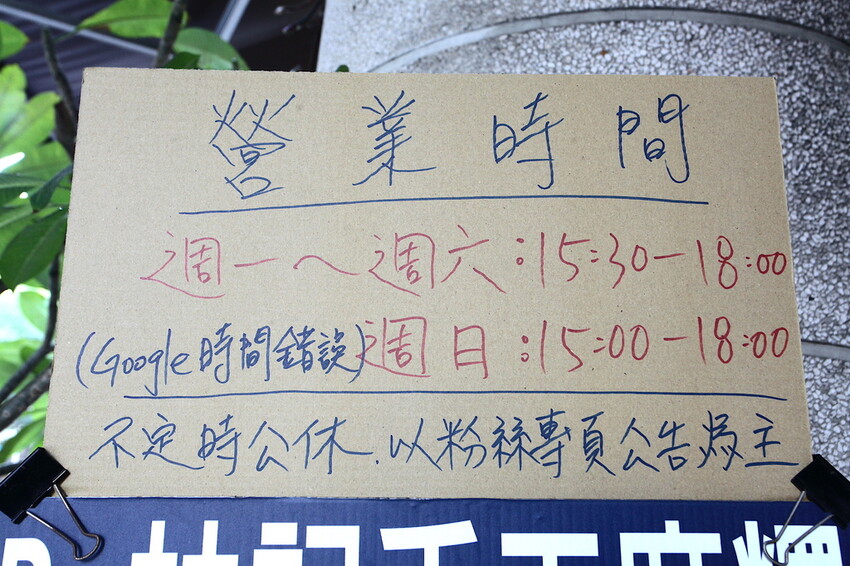 營業時間
週一~週六:15:30-18:00
(Google時間錯誤)週日:15:00-18:00
不定時公休.以粉絲專頁公告為主
林記手工麻糬